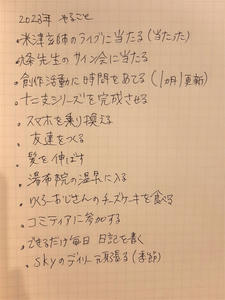 2023年 やること
・米津玄師のライブに当たる(当たった)
・条先生のサイン会に当たる
・創作活動に時間をあてる(1ヵ月1更新)
・十二支シリーズを完成させる
・スマホを乗り換える
・友達をつくる
・髪を伸ばす
・湯布院の温泉に入る
・りくろーおじさんのチーズケーキを食べる
・コミティアに参加する
・できるだけ毎日 日記を書く
・skyのデイリー頑張る(季節)